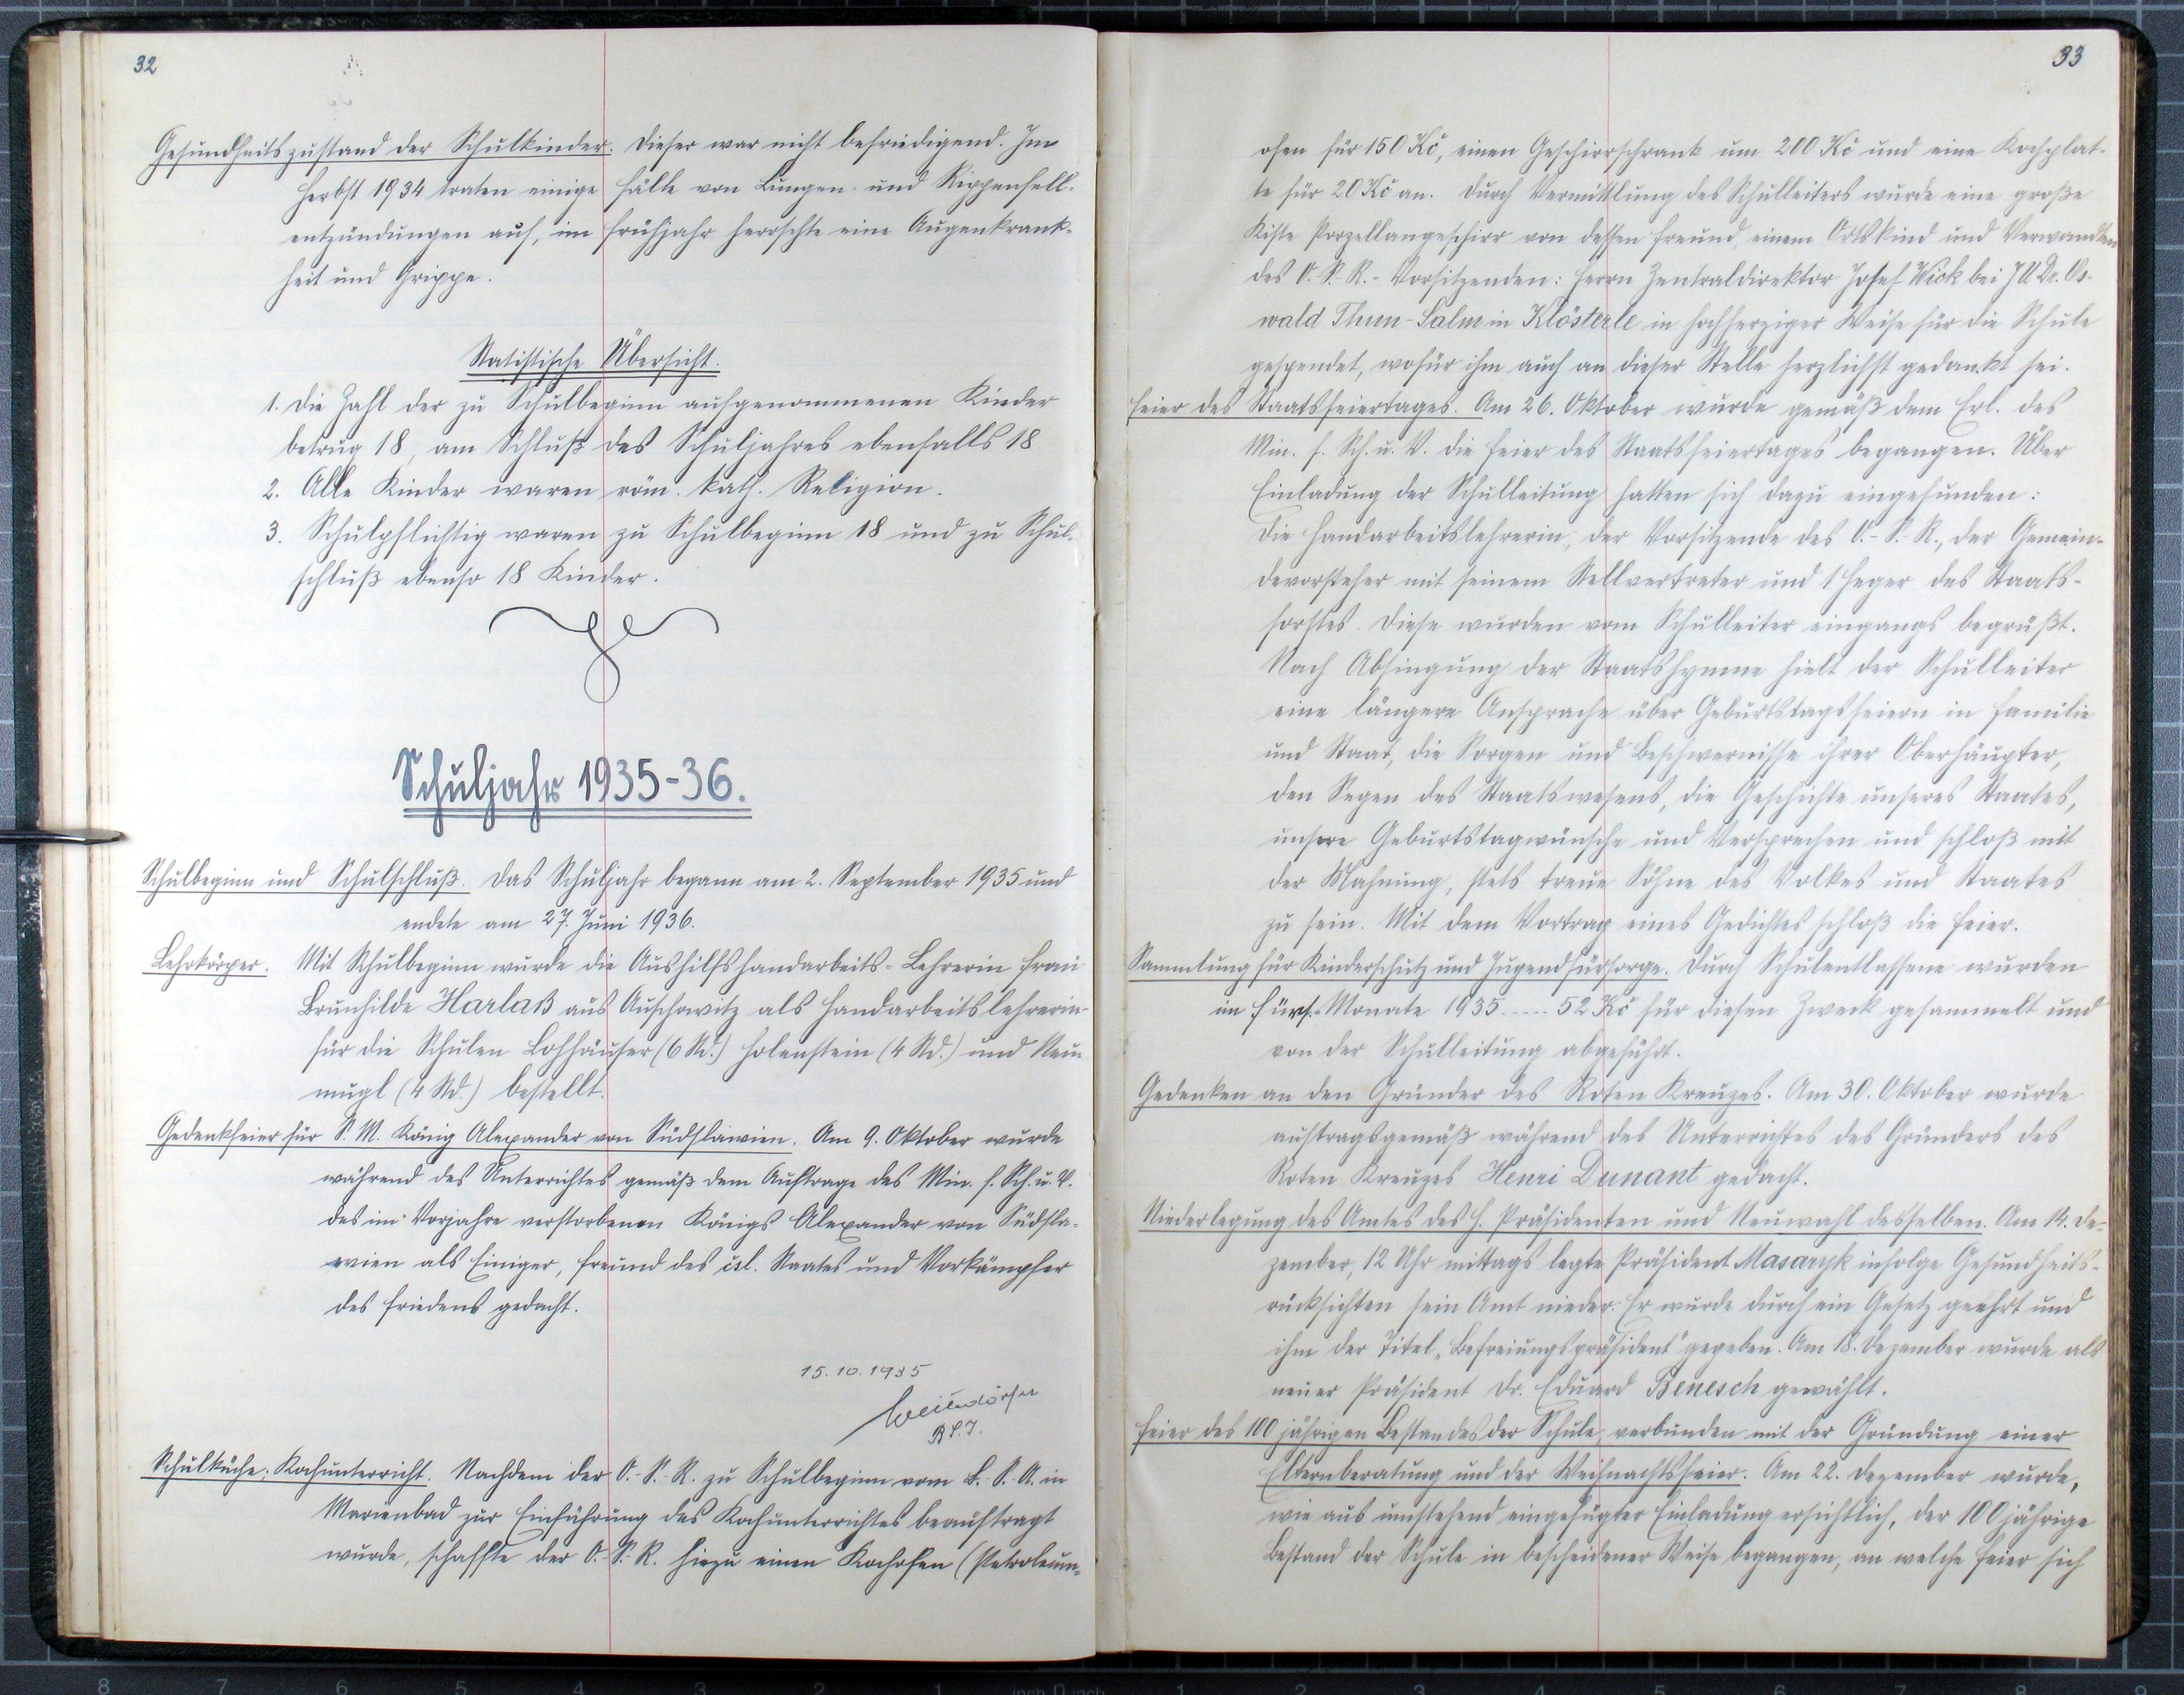 32
Gesundheitszustand der Schulkinder: Dieser war nicht befriedigend. Im
Herbst 1934 traten einige Fälle von Lungen- und Rippenfell-
entzündungen auf, im Frühjahr herrschte eine Augenkrank-
heit und Grippe.
Statistische Übersicht.
1. Die Zahl der zu Schulbeginn aufgenommenen Kinder
betrug 18, am Schluß des Schuljahres ebenfalls 18.
2. Alle Kinder waren röm. kath. Religion.
3. Schulpflichtig waren zu Schulbeginn 18 und zu Schul-
schluß ebenso 18 Kinder.
Schuljahr 1935-36.
Schulbeginn und Schulschluß. Das Schuljahr begann am 2. September 1935 und
endete am 27. Juni 1936.
Lehrkörper. Mit Schulbeginn wurde die Aushilfshandarbeits-Lehrerin Frau
Brunhilde Harlaß aus Auschowitz als Handarbeitslehrerin
für die Schulen Lohhäuser (6 Std.) Holenstein (4 Std.) und Neu-
mugl (4 Std.) bestellt.
Gedenkfeier für S. M. König Alexander von Südslawien. Am 9. Oktober wurde
während des Unterrichtes gemäß dem Auftrage des Min. f. Sch. u. V.
des im Vorjahre verstorbenen Königs Alexander von Südsla-
wien als Einiger, Freund des čsl. Staates und Vorkämpfer
des Friedens gedacht.
15.10.1935
B.S.I.
Schulküche: Kochunterricht. Nachdem der O.-S.-R. zu Schulbeginn vom B.-S.-A. in
Marienbad zur Einführung des Kochunterrichtes beauftragt
wurde, schaffte der O.-S.-R. hiezu einen Kochofen (Petroleum-
33
ofen für 150 Kč, einen Geschirrschrank um 200 Kč und eine Kochplat-
te für 20 Kč an. Durch Vermittlung des Schulleiters wurde eine große
Kiste Porzellangeschirr von dessen Freund, einem Ortskind und Verwandten
des O.-S.-R.-Vorsitzenden: Herrn Zentraldirektor Josef Wick bei JUDr. Os-
wald Thun-Salm in Klösterle in hochherziger Weise für die Schule
gespendet, wofür ihm auch an dieser Stelle herzlichst gedankt sei.
Feier des Staatsfeiertages. Am 26. Oktober wurde gemäß dem Erl. des
Min. f. Sch. u. V. die Feier des Staatsfeiertages begangen. Über
Einladung der Schulleitung hatten sich dazu eingefunden:
Die Handarbeitslehrerin, der Vorsitzende des O.-S.-R., der Gemein-
devorsteher mit seinem Stellvertreter und 1 Heger des Staats-
forstes. Diese wurden vom Schulleiter eingangs begrüßt.
Nach Absingung der Staatshymne hielt der Schulleiter
eine längere Ansprache über Geburtstagsfeiern in Familie
und Staat, die Sorgen und Beschwernisse ihrer Oberhäupter,
den Segen des Staatswesens, die Geschichte unseres Staates,
unsere Geburtstagwünsche und Versprechen und schloß mit
der Mahnung, stets treue Söhne des Volkes und Staates
zu sein. Mit dem Vortrag eines Gedichtes schloß die Feier.
Sammlung für Kinderschutz und Jugendfürsorge. Durch Schulentlassene wurden
im Fürs.-Monate 1935 ..... 52 Kč für diesen Zweck gesammelt und
von der Schulleitung abgeführt.
Gedenken an den Gründer des Roten Kreuzes. Am 30. Oktober wurde
auftragsgemäß während des Unterrichtes des Gründers des
Roten Kreuzes Henri Dunant gedacht.
Niederlegung des Amtes des H. Präsidenten und Neuwahl desselben. Am 14. De-
zember, 12 Uhr mittags legte Präsident Masaryk infolge Gesundheits-
rücksichten sein Amt nieder. Er wurde durch ein Gesetz geehrt und
ihm der Titel „Befreiungspräsident" gegeben. Am 18. Dezember wurde als
neuer Präsident Dr. Eduard Benesch gewählt.
Feier des 100 jährigen Bestandes der Schule, verbunden mit der Gründung einer
Elternberatung und der Weihnachtsfeier. Am 22. Dezember wurde,
wie aus umstehend eingefügter Einladung ersichtlich, der 100 jährige
Bestand der Schule in bescheidener Weise begangen, an welche Feier sich
8 7 6 5 4 3 2 1 inch 0 inch 1 2 3 4 5 6 7 8 9